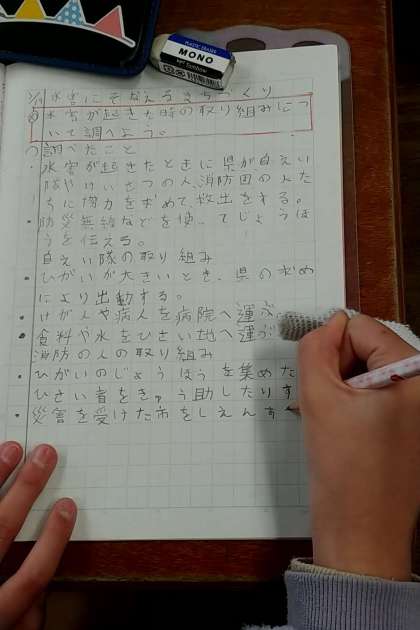 水害にそなえるまちづくり
め 水害が起きた時の取り組みにつ
いて調べよう。
調べたこと
・水害が起きたときに県が自えい
隊やけいさつの人、消防団の人た
ちに協力を求めて救出をする。
・防災無線などを使ってじょうほ
うを伝える。
自えい隊の取り組み
・ひがいが大きいとき、県の求め
により出動する。
・けが人や病人を病院へ運ぶ。
・食料や水をひさい地へ運ぶ
消防の人の取り組み
・ひがいのじょうほうを集めた
ひさい者をきゅう助したりす
・災害を受けた市をしえんす
PLASTIC ERASER
MONO
Tombow